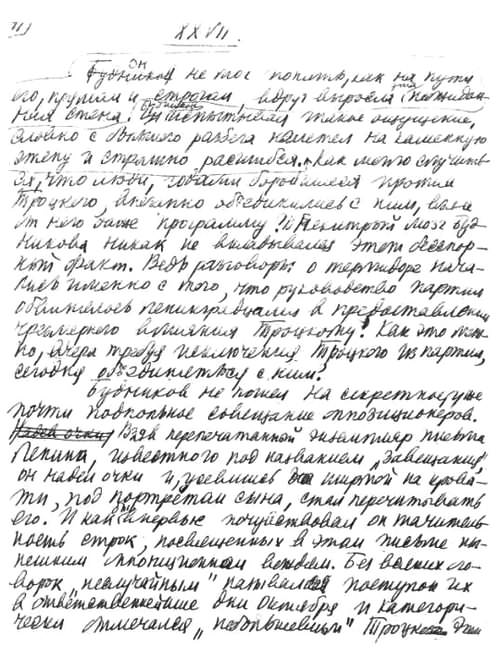 XXVII.
Он не мог понять, как на пути
его, прямом и строгом, вдруг выросла эта неожидан-
ная стена. Будников испытывал такое ощущение,
словно с большого разбега налетел на каменную
стену и страшно расшибся. Как могло случить-
ся, что люди, годами боровшиеся против
Троцкого, внезапно объединились с ним, взяв
от него даже программу? В нехитрый мозг Буд-
никова никак не вкладывался этот бесспор-
ный факт. Ведь разговоры о термидоре нача-
лись именно с того, что руководство партии
обвинялось ленинградцами в предоставлении
чрезмерного влияния Троцкому! Как это мож-
но, вчера требуя исключения Троцкого из партии,
сегодня объединяться с ним?
Будников не пошел на секретное, уже
почти подпольное совещание оппозиционеров.
Надев очки Взяв перепечатанный экземпляр письма
Ленина, известного под названием „Завещания",
он надел очки и, усевшись на кровa-
ти, под портретом сына, стал перечитывать
его. И как впервые почувствовал он значитель-
ность строк, посвященных в этом письме ны-
нешним оппозиционным вождям. Без всяких ого-
ворок „неслучайным" назывался поступок их
в ответственнейшие дни Октября и категори-
чески отмечался „небольшевизм" Троцкого